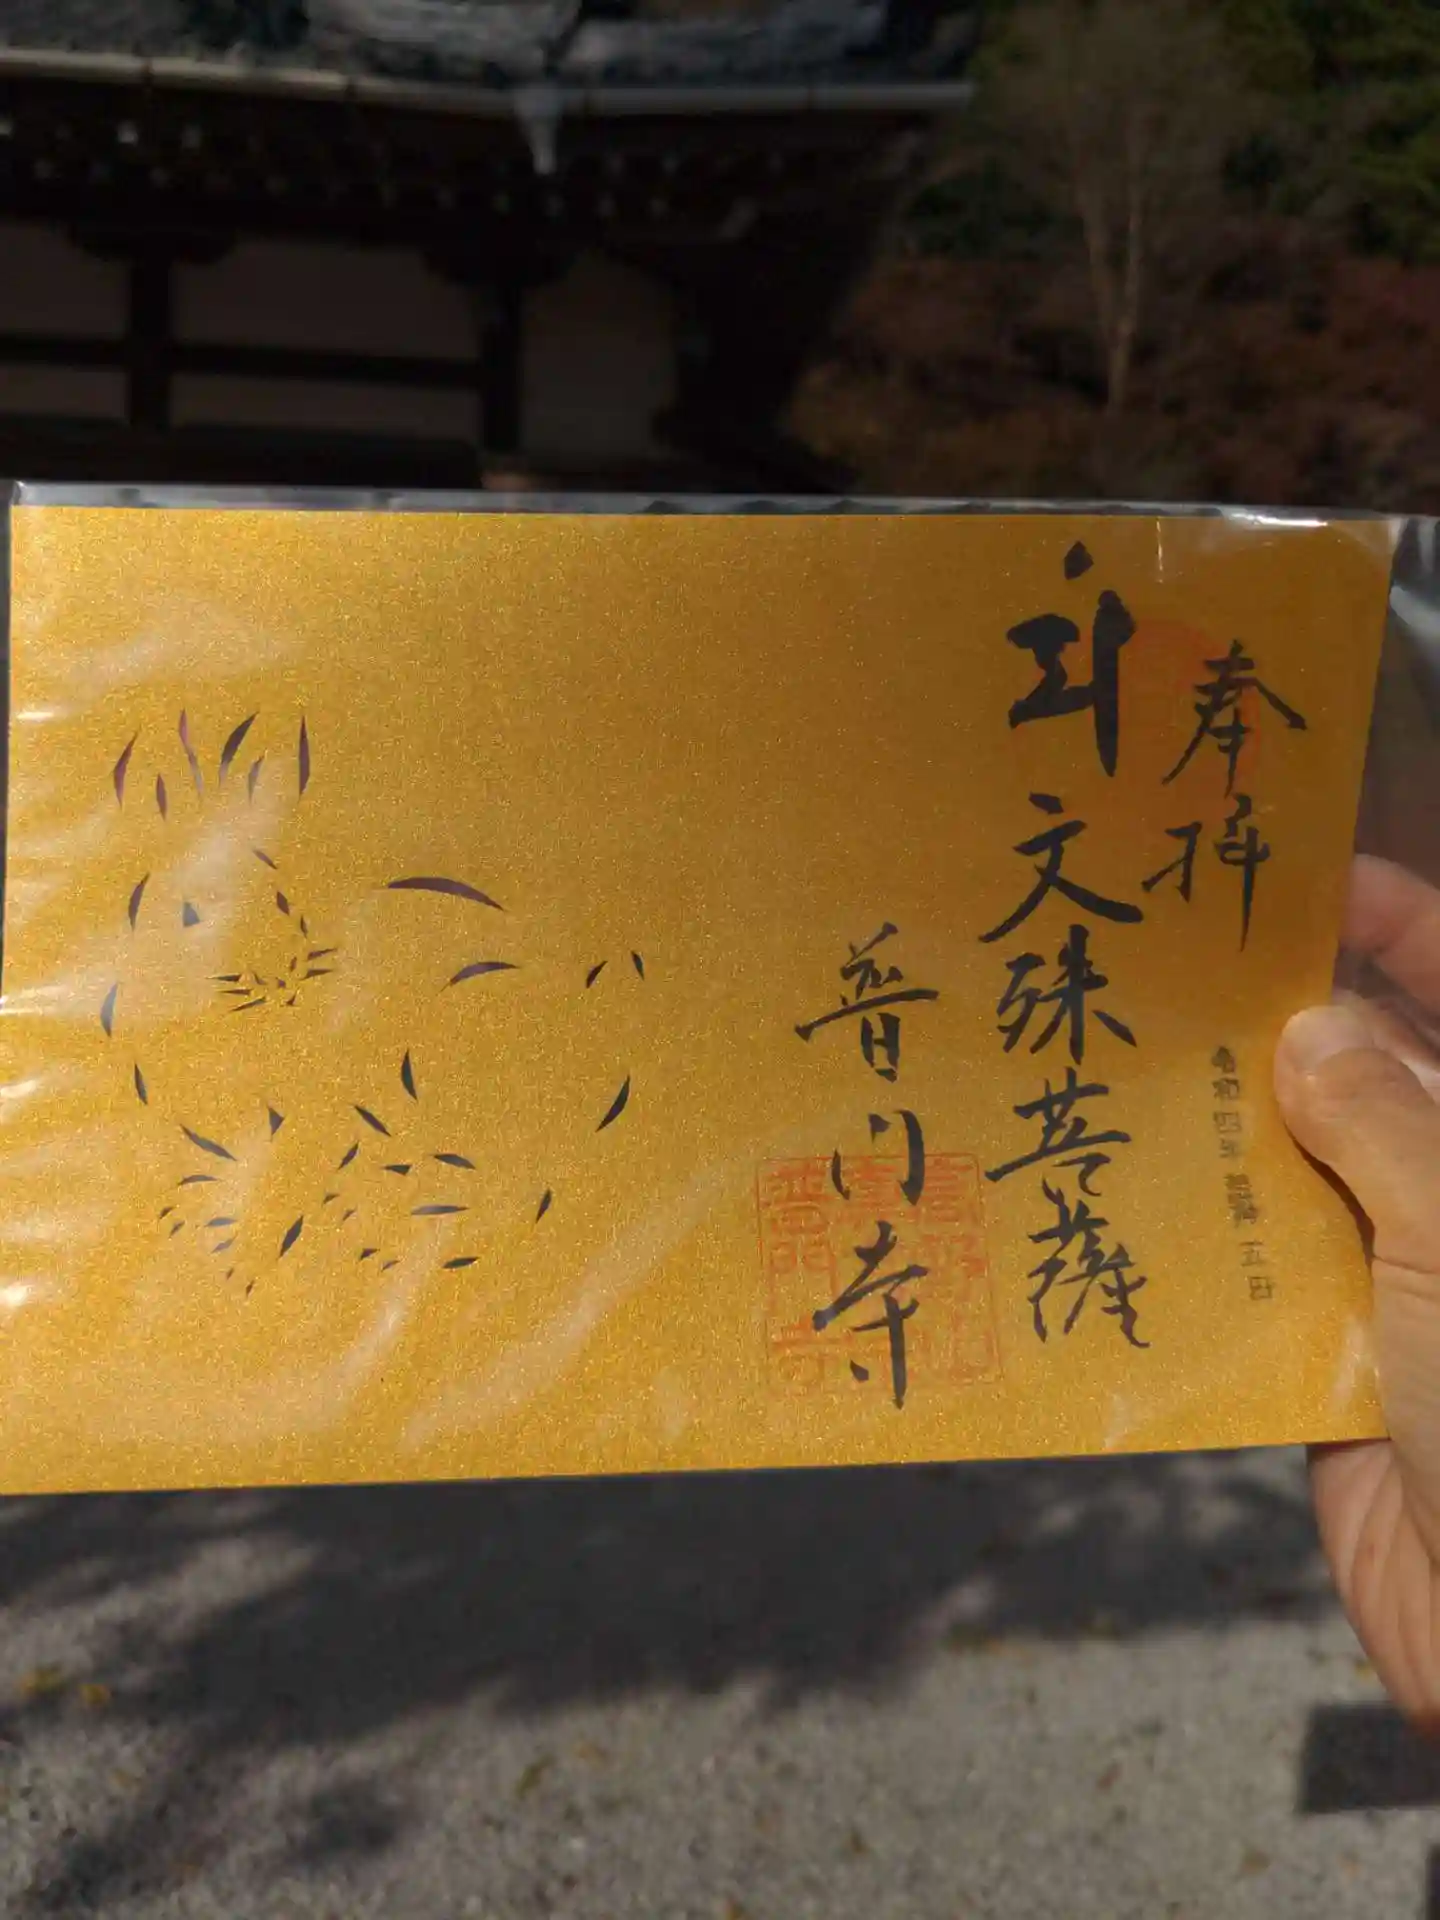 奉拝
令和四年 五日
文殊菩薩
普門寺